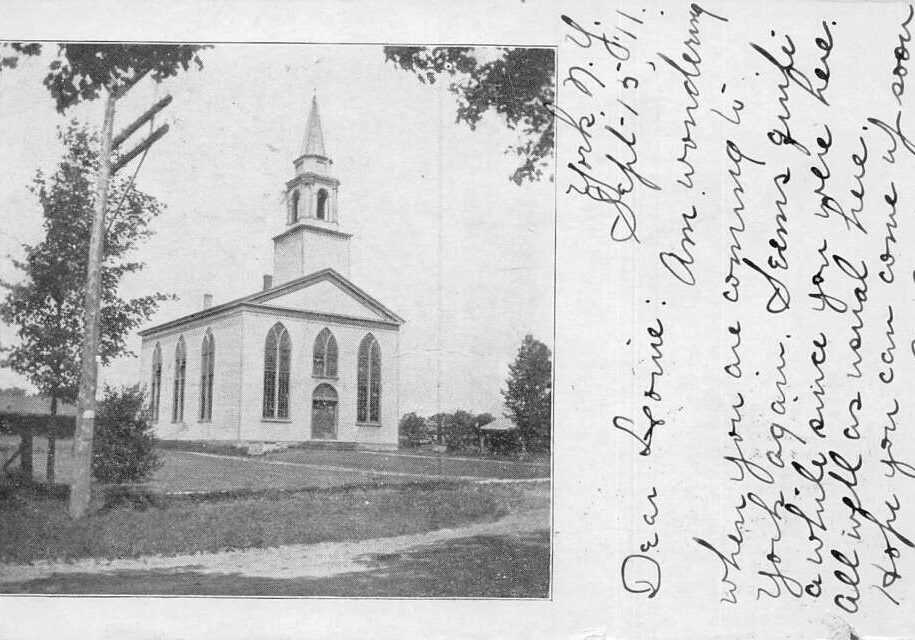 York, N. Y.
Sept-15-'11.
Dear Louie: Am wondering
when you are coming to-
York again. Seems quite
a while since you were here.
all well as usual here.
Hope you can come up soon